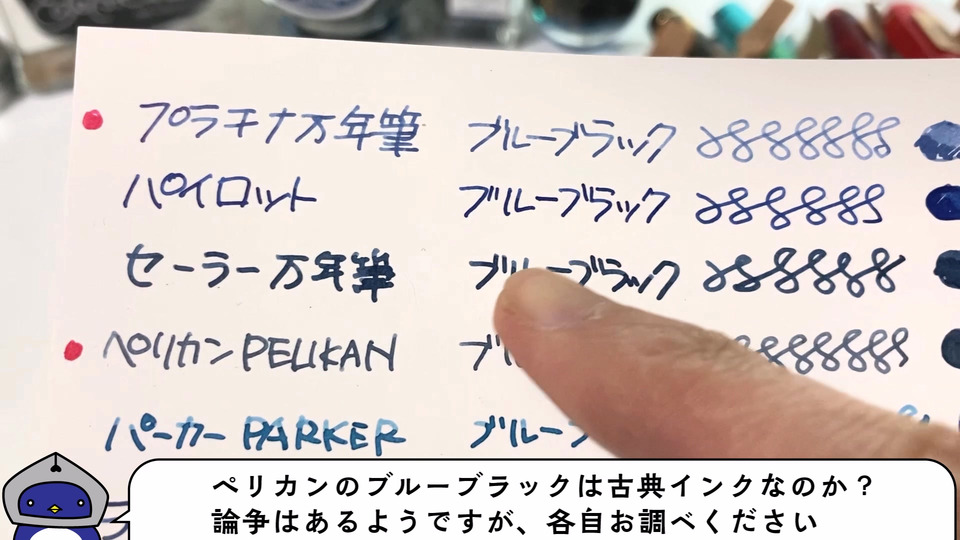 プラチナ万年筆 ブルーブラック
パイロット ブルーブラック
セーラー万年筆 ブルーブラック
ペリカン PELIKAN ブ
パーカー PARKER ブルーブ
ペリカンのブルーブラックは古典インクなのか？
論争はあるようですが、各自お調べください